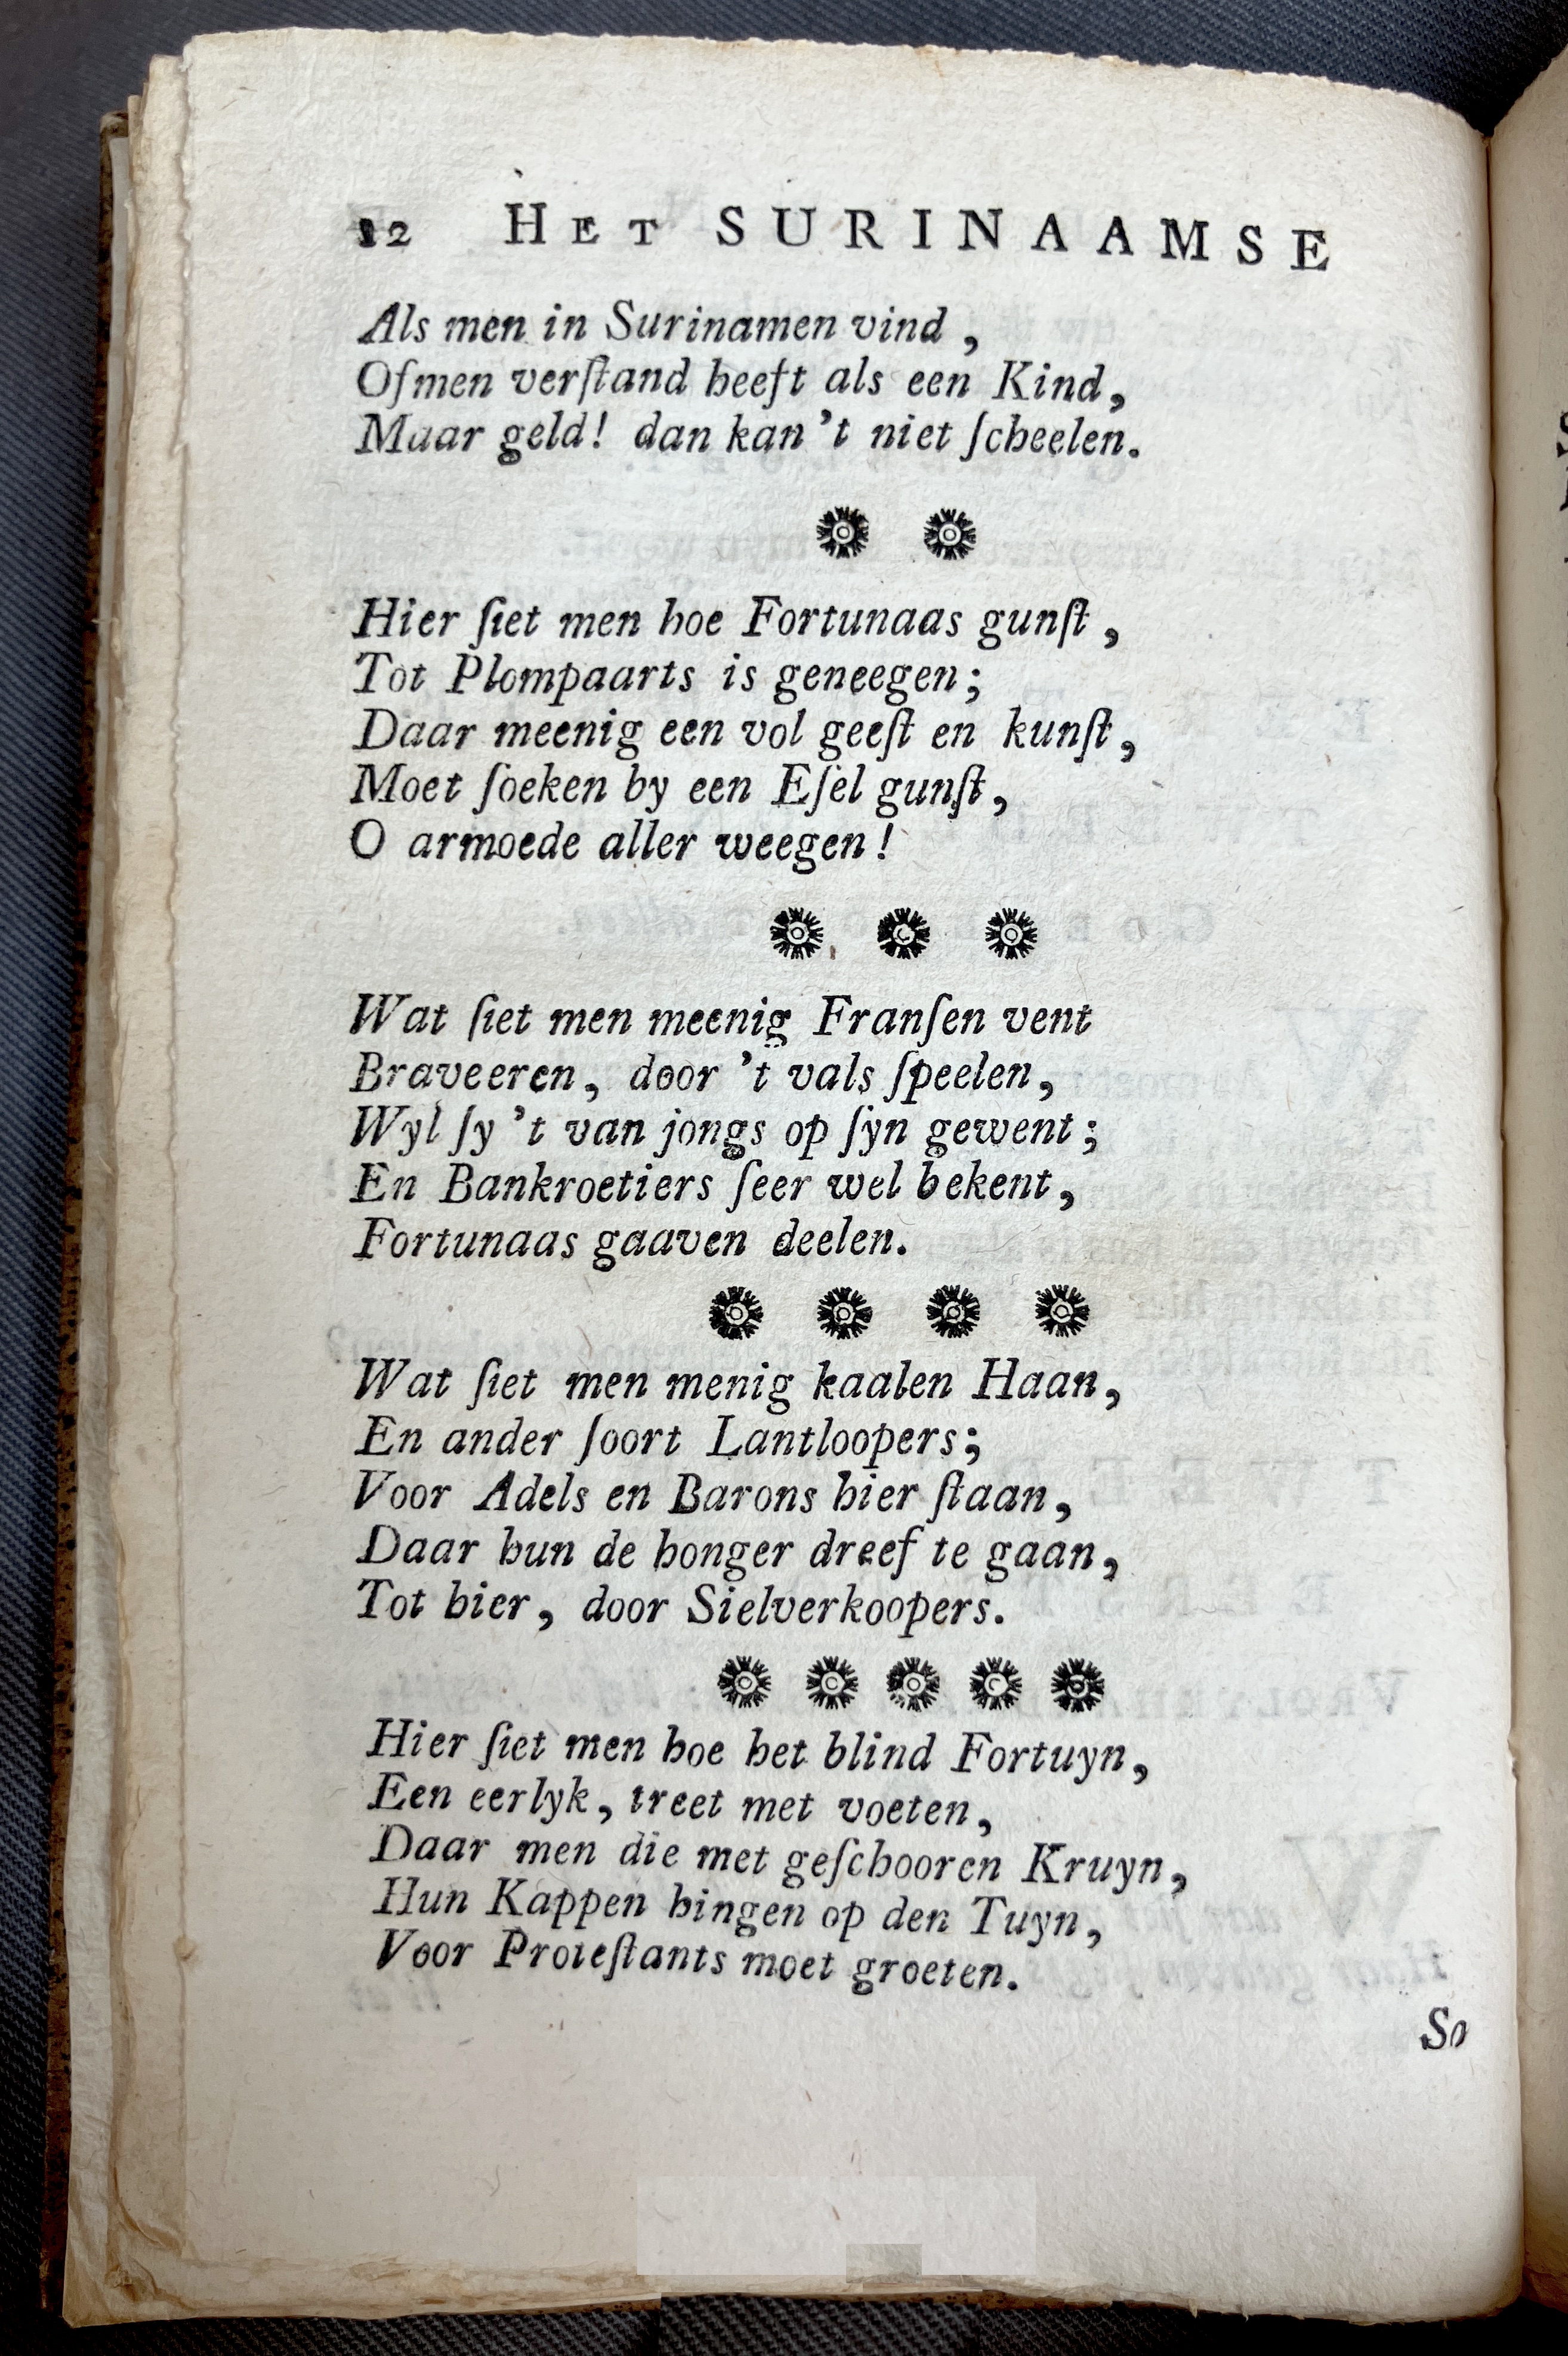 12 HET SURINAAMSE
Als men in Surinamen vind,
Of men verſtand heeft als een Kind,
Maar geld! dan kan 't niet ſcheelen.
Hier ſiet men hoe Fortunaas gunſt,
Tot Plompaarts is geneegen;
Daar meenig een vol geeſt en kunſt,
Moet ſoeken by een Eſel gunſt,
O armoede aller weegen!
Wat ſiet men meenig Franſen vent
Braveeren, door 't vals ſpeelen,
Wyl ſy 't van jongs op ſyn gewent;
En Bankroetiers ſeer wel bekent,
Fortunaas gaaven deelen.
Wat ſiet men menig kaalen Haan,
En ander ſoort Lantloopers;
Voor Adels en Barons hier ſtaan,
Daar hun de honger dreef te gaan,
Tot hier, door Sielverkoopers.
Hier ſiet men hoe het blind Fortuyn,
Een eerlyk, treet met voeten,
Daar men die met geſchooren Kruyn,
Hun Kappen hingen op den Tuyn,
Voor Proteſtants moet groeten.
So